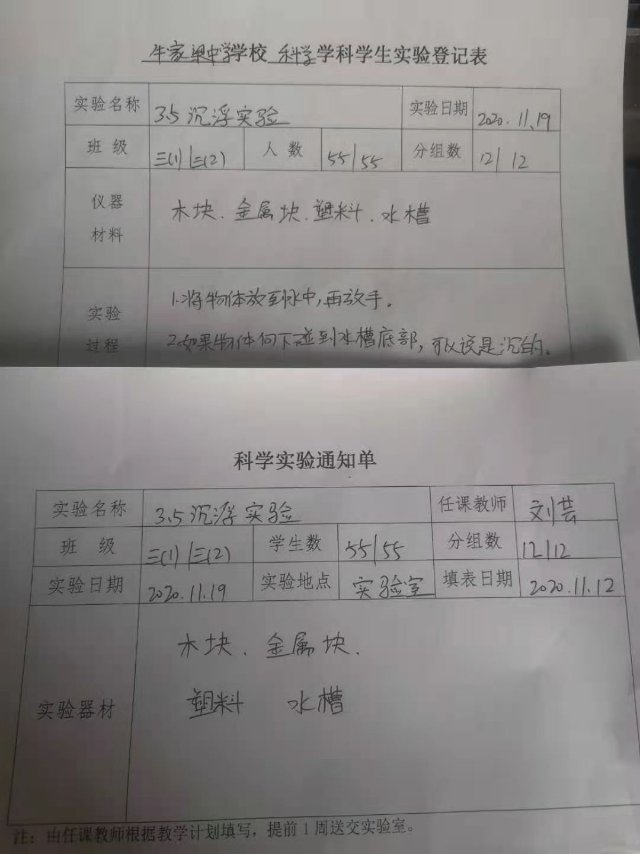 牛家梁中学学校 科学学科学生实验登记表
实验名称 3.5 沉浮实验 实验日期 2020.11.19
班 级 三(1) 三(2) 人 数 55/55 分组数 12/12
仪器
材料
木块、金属块、塑料、水槽
实验
过程
1.将物体放到水中,再放手。
2.如果物体向下碰到水槽底部,可以说是沉的。
科学实验通知单
实验名称 3.5 沉浮实验 任课教师 刘芸
班 级 三(1) 三(2) 学生数 55/55 分组数 12/12
实验日期 2020.11.19 实验地点 实验室 填表日期 2020.11.12
实验器材
木块、金属块、
塑料 水槽
注:由任课教师根据教学计划填写,提前1周送交实验室。